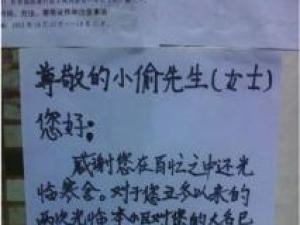 尊敬的小偷先生(女士)
您好;
感谢您在百忙之中还光
临寒舍。对于您五多以来的
两次光临本小区对您的大名已